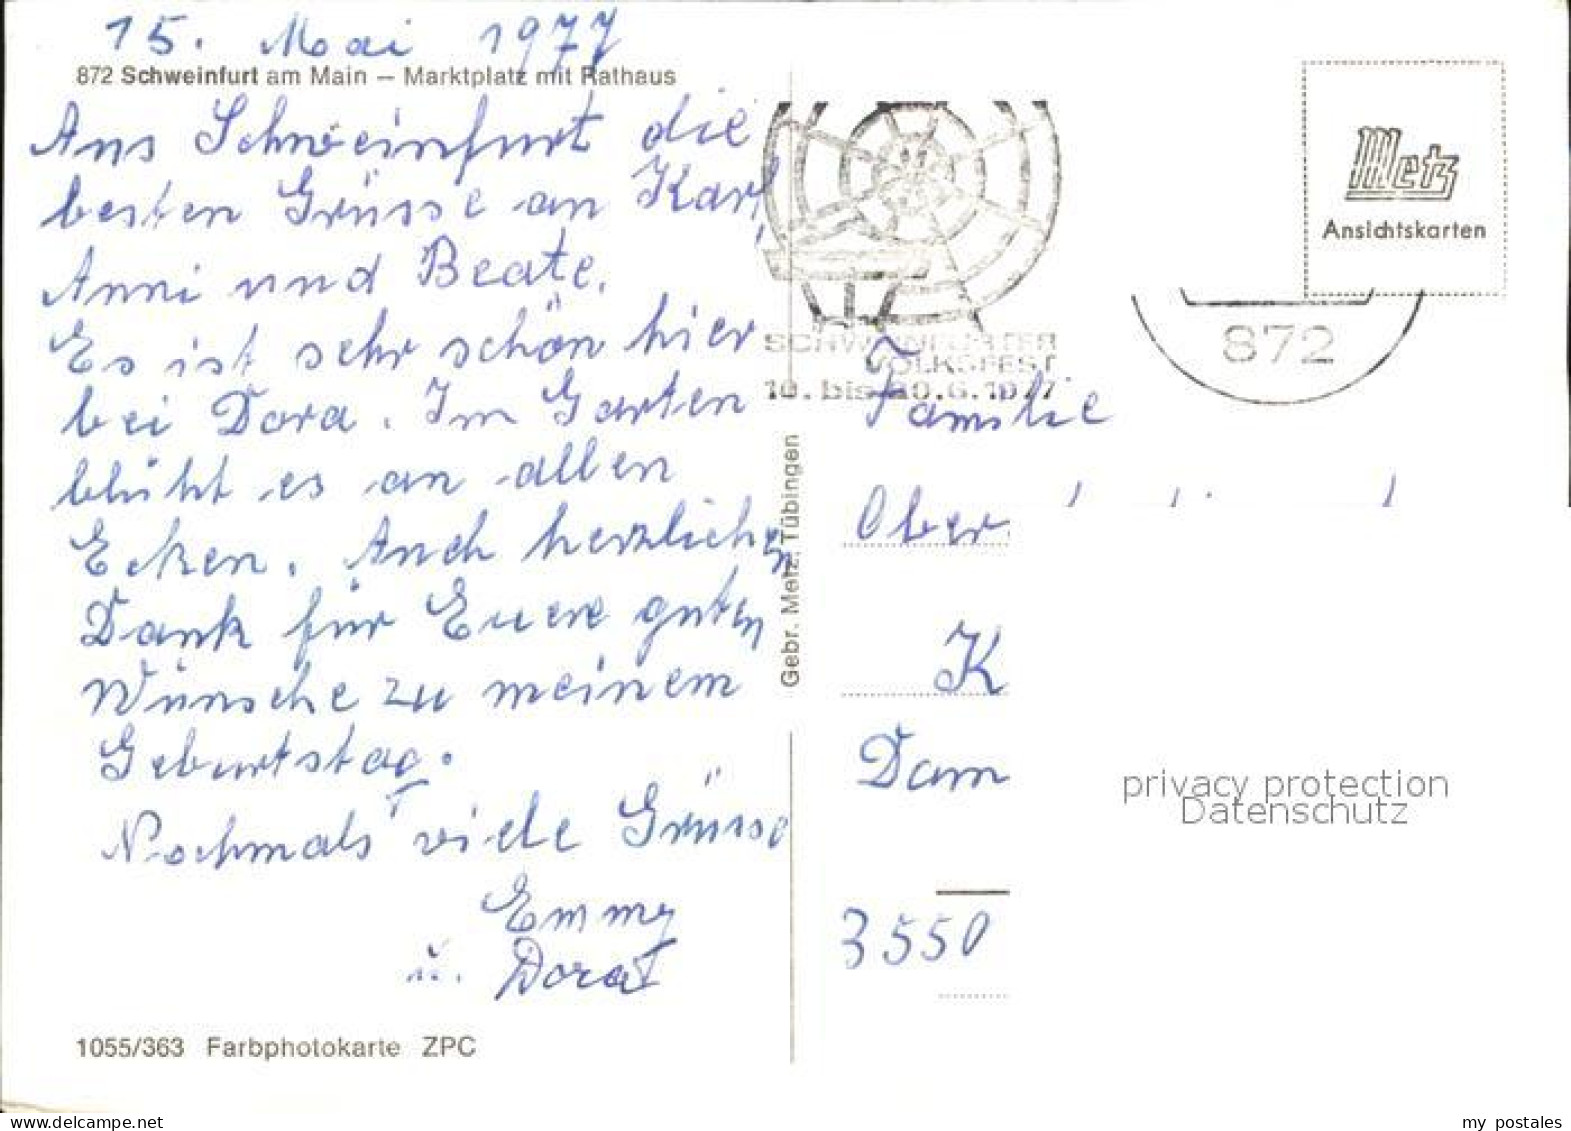 15. Mai 1977
872 Schweinfurt am Main – Marktplatz mit Rathaus
Aus Schweinfurt die
besten Grüsse an Karl,
Anni und Beate.
Es ist sehr schön hier
bei Dora. Im Garten
blüht es an allen
Ecken. Auch herzlichen
Dank für Eure guten
Wünsche zu meinem
Geburtstag.
Nochmals viele Grüsse
Emmy
u. Dora
1055/363 Farbphotokarte ZPC
Gebr. Metz, Tübingen
SCHWEINFURTER
VOLKSFEST
10. bis 20.6.1977
Metz
Ansichtskarten
872
Familie
Ober
K
Dam
3550
privacy protection
Datenschutz
www.delcampe.net
my_postales